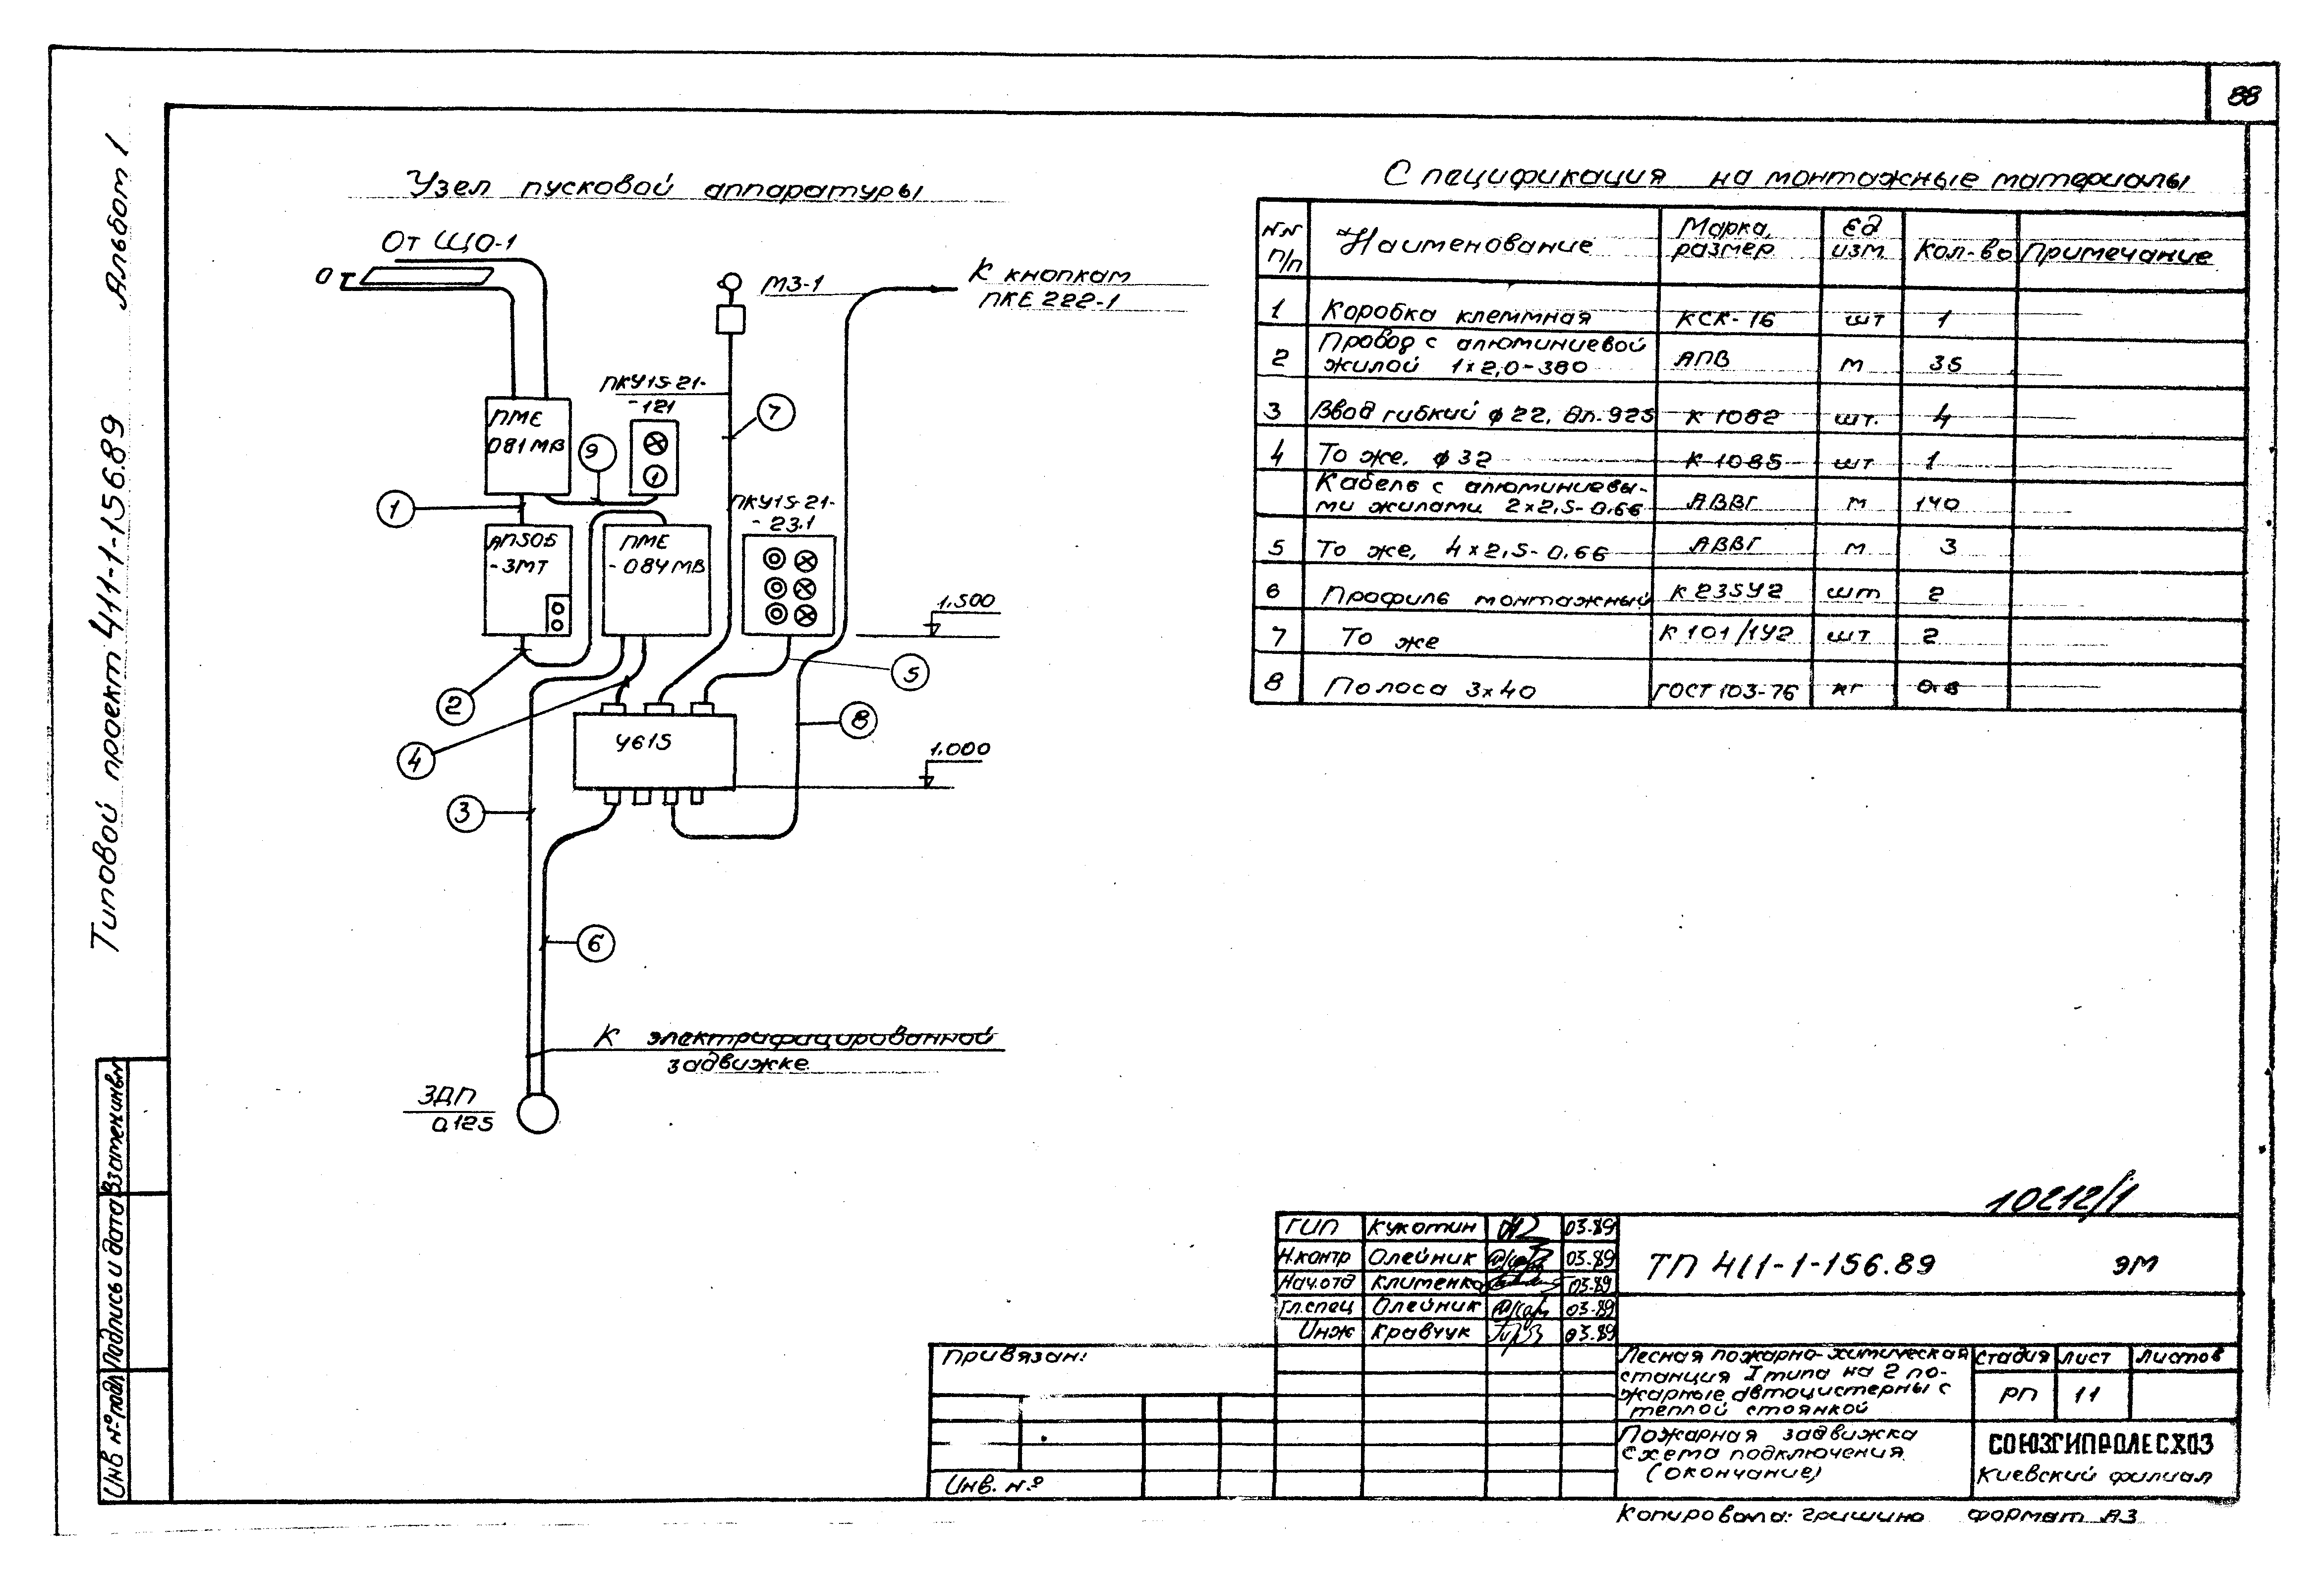 88
Альбом 1
Типовой проект 411-1-156.89
Узел пусковой аппаратуры
От ЩО-1
От
МЗ-1
К кнопкам
ПКЕ 222-1
ПКУ15-21-
-121
7
ПМЕ
081МВ
9
1
1
ПКУ15-21-
-23.1
АП50Б
-3МТ
ПМЕ
-084МВ
1.500
2
5
8
У615
4
1.000
3
6
К электрафацированной
задвижке
ЗДП
0.125
Спецификация на монтажные материалы
N.N п/п Наименование Марка, размер Ед изм. Кол-во Примечание
1 Коробка клеммная КСК-16 шт 1
2 Провод с алюминиевой
жилой 1х2,0-380 АПВ м 35
3 Ввод гибкий ф22, вл.-925 К 1082 шт. 4
4 То же, ф32 К 1085 шт 1
Кабель с алюминиевы-
ми жилами 2х2,5-0.66 АВВГ м 140
5 То же, 4х2,5-0.66 АВВГ м 3
6 Профиль монтажный К235У2 шт 2
7 То же К101/1У2 шт 2
8 Полоса 3х40 ГОСТ 103-76 кг 0.8
10212/1
ГИП Кукотин 03.89
Н.контр Олейник 03.89
Нач.отд Клименко 03.89
Гл.спец Олейник 03.89
Инж Кравчук 03.89
ТП 411-1-156.89 ЭМ
Привязан:
Инв. №
Лесная пожарно-химическая
станция I типа на 2 по-
жарные автоцистерны с
теплой стоянкой
Стадия Лист Листов
РП 11
Пожарная задвижка
Схема подключения
(окончание)
СОЮЗГИПРОЛЕСХОЗ
Киевский филиал
Копировала: Гришино Формат А3
Взамен инв.№
Подпись и дата
Инв № подл